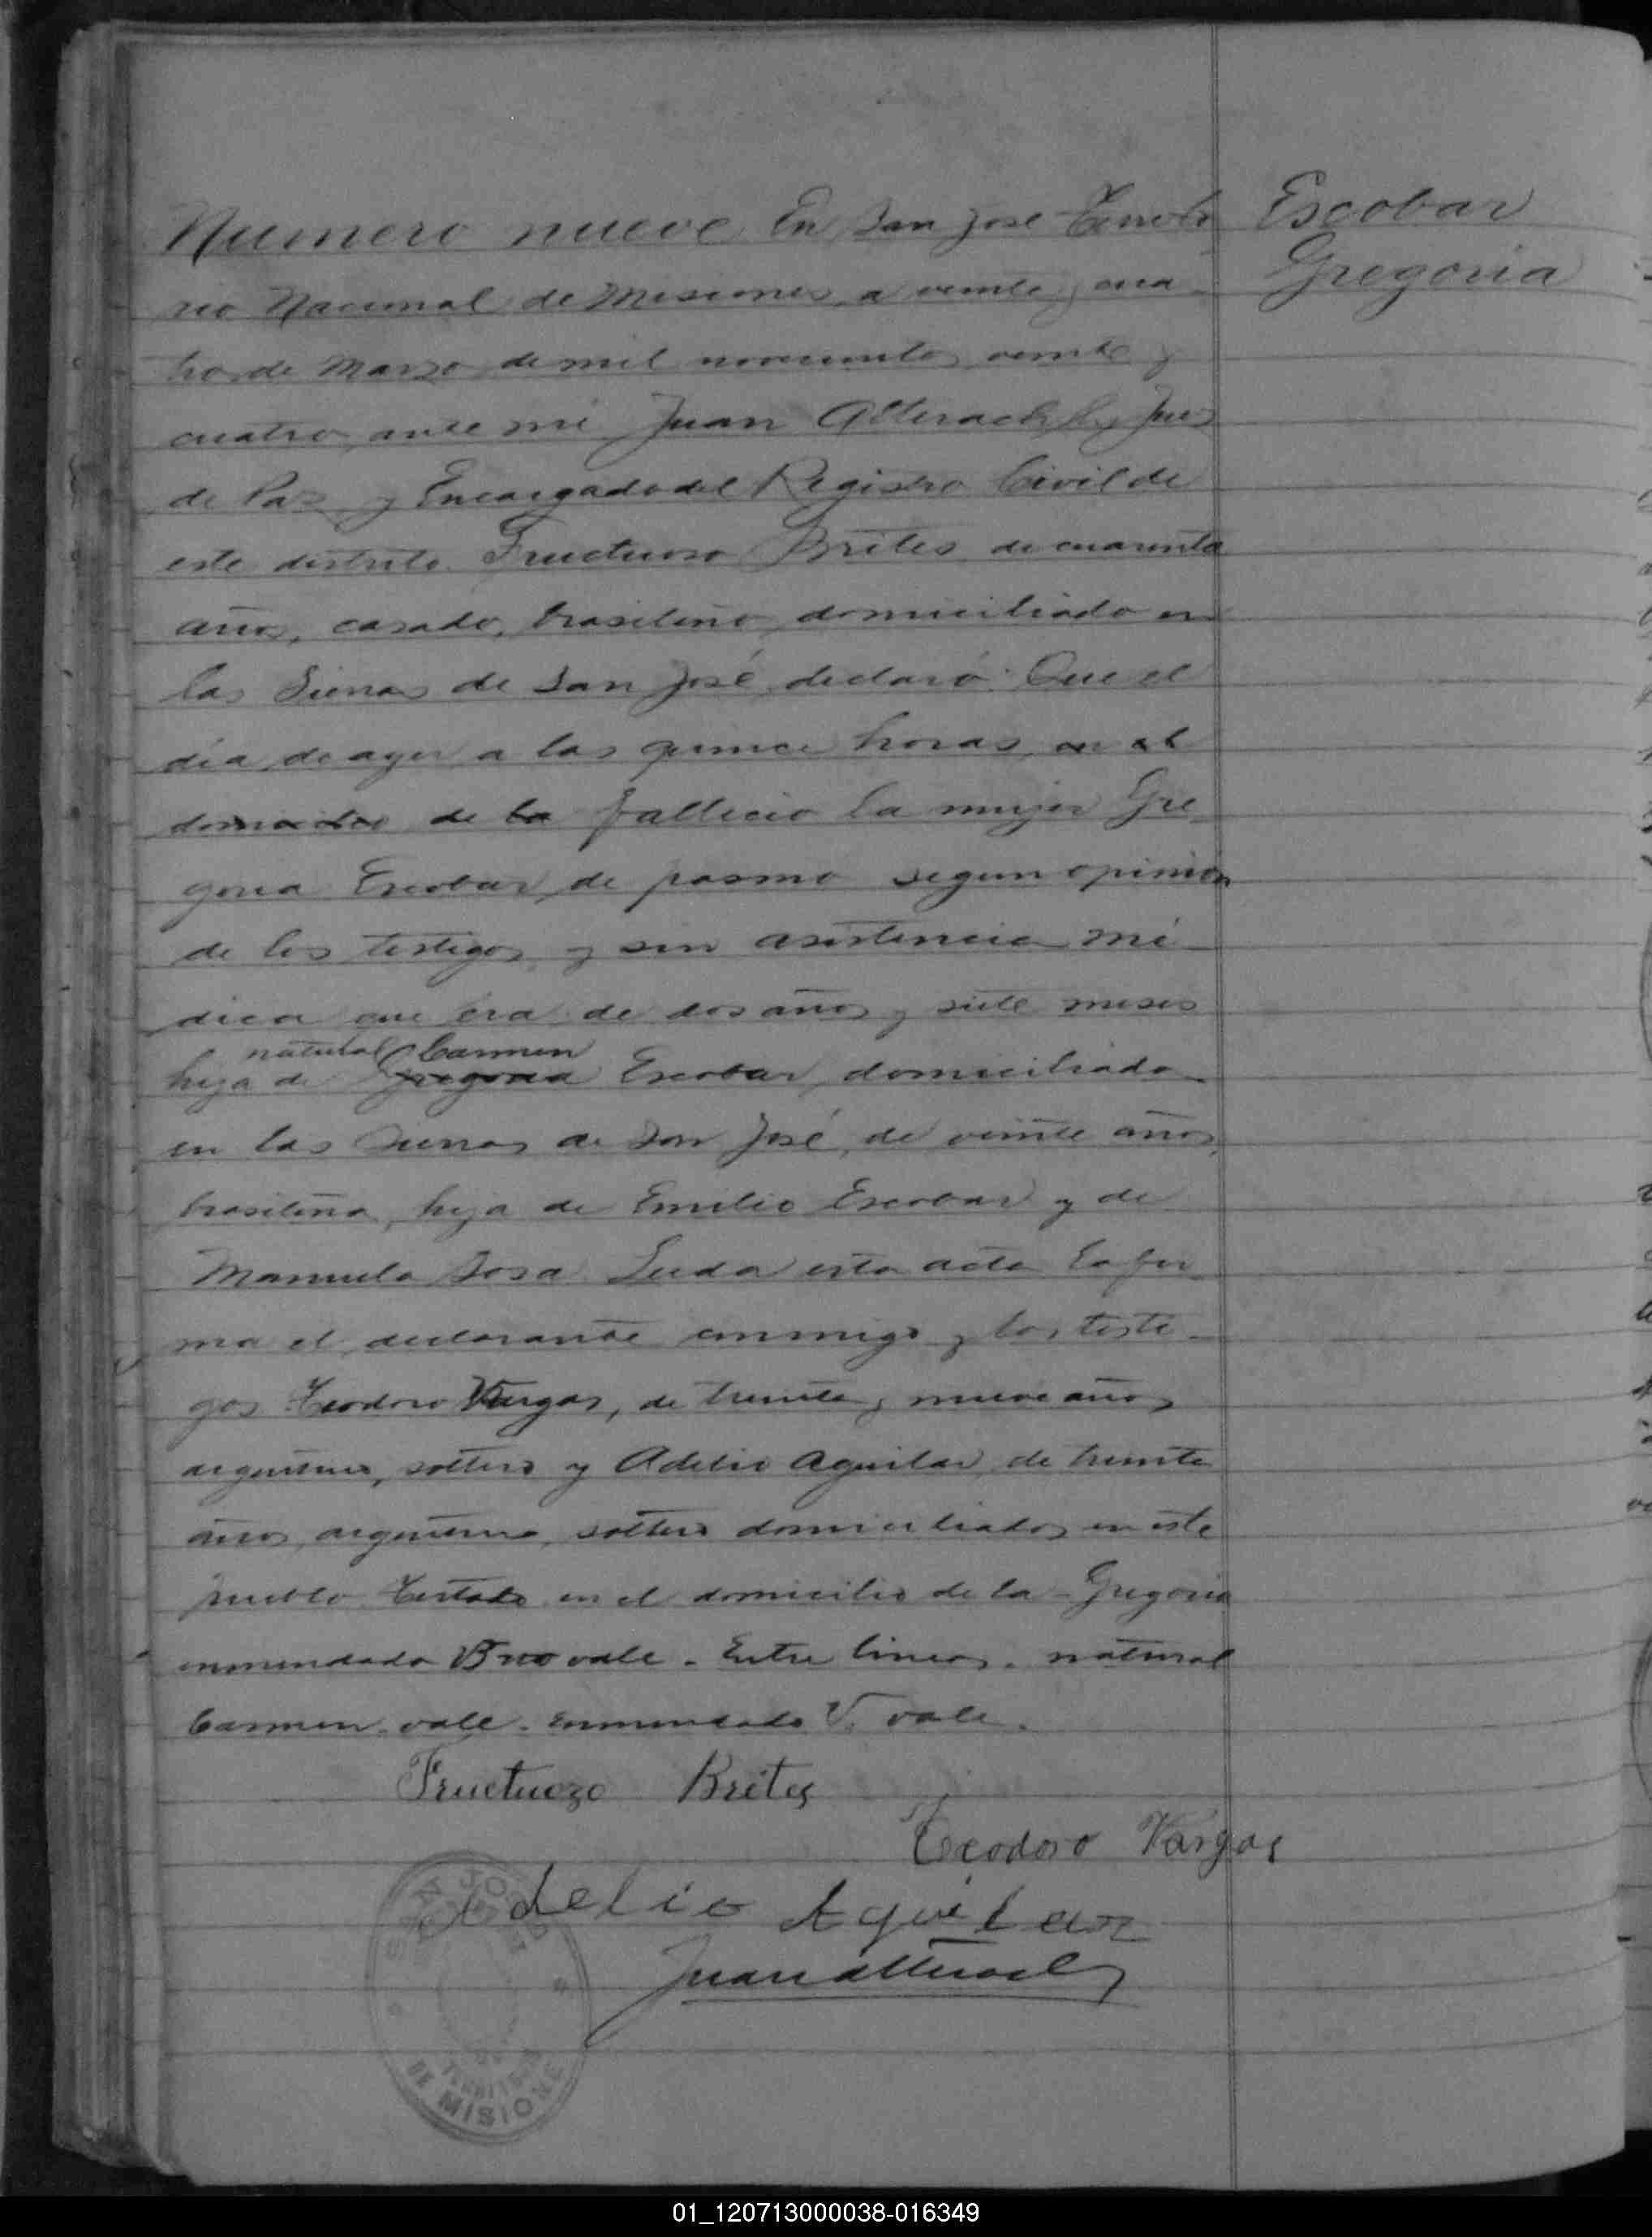 Numero nueve En San José Territo
rio Nacional de Misiones, a veinte y cua
tro de Marzo de mil novecientos veinte y
cuatro, ante mi Juan Alterach h. Juez
de Paz y Encargado del Registro Civil de
este distrito Fructuoso Brites de cuarenta
años, casado, brasileño, domiciliado en
las Sierras de San José, declaró: Que el
día de ayer a las quince horas, en el
domicilio de la fallecio la mujer Gre
goria Escobar, de pasmo segun opinion
de los testigos, y sin asistencia mé
dica que era de dos años y siete meses
natural Carmen
hija de Gregoria Escobar, domiciliada
en las Sierras de San José, de veinte años,
brasileña, hija de Emilio Escobar y de
Manuela Sosa Leida esta acta la fir
ma el declarante conmigo y los testi
gos Teodoro Vargas, de treinta y nueve años
argentino, soltero y Adelio Aguilar, de treinta
años, argentino, soltero domiciliados en este
pueblo. Testado en el domicilio de la - Gregoria
enmendado B no vale - Entre lineas - natural
Carmen - vale - enmendado V. vale.
Fructuozo Brites
Teodoro Vargas
Adelio Aguilar
Juan Alterach
SAN JOSÉ
TERRITORIO
DE MISIONES
Escobar
Gregoria
01_120713000038-016349